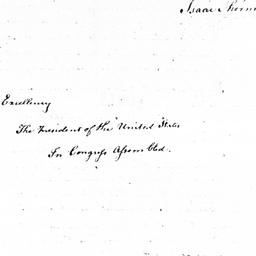 Isaac
Excellency
The President of the United States
In Congress Assembled.